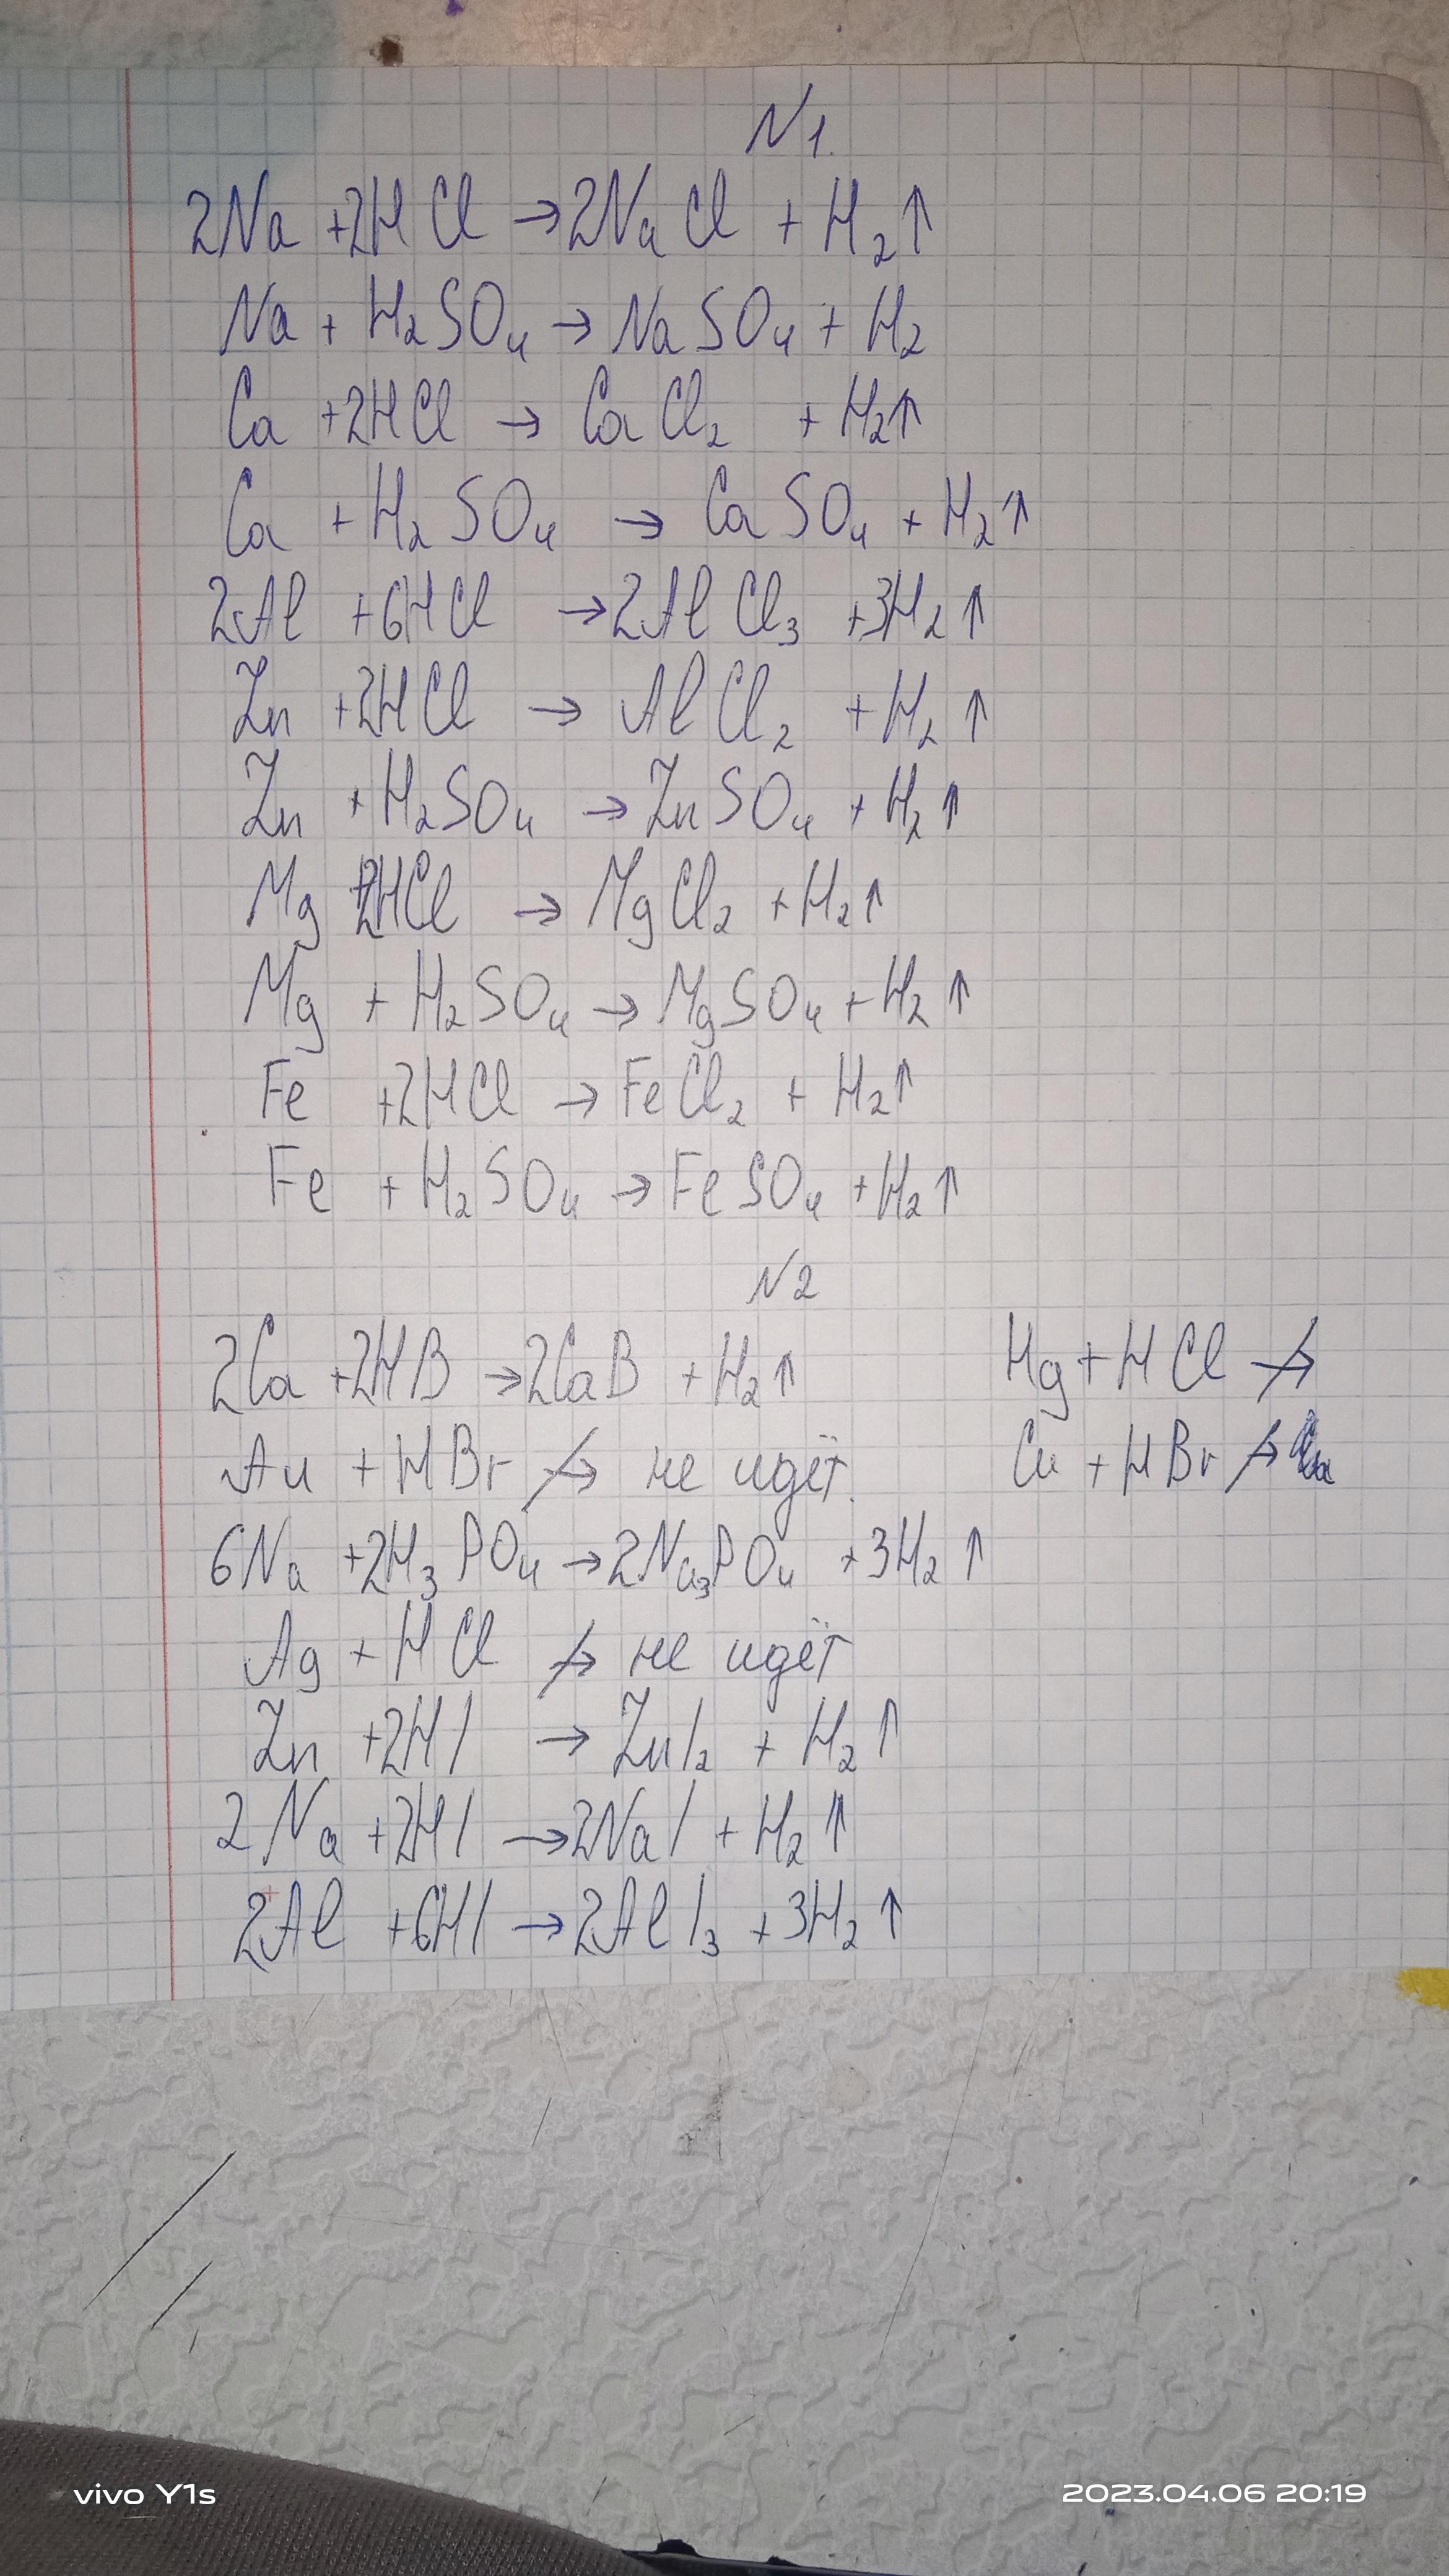 N1.
2Na +2HCl → 2NaCl + H₂↑
Na + H₂SO₄ → NaSO₄ + H₂
Ca +2HCl → CaCl₂ + H₂↑
Ca + H₂SO₄ → CaSO₄ + H₂↑
2Al +6HCl → 2AlCl₃ +3H₂↑
Zn +2HCl → AlCl₂ + H₂↑
Zn + H₂SO₄ → ZnSO₄ + H₂↑
Mg +2HCl → MgCl₂ + H₂↑
Mg + H₂SO₄ → MgSO₄ + H₂↑
Fe +2HCl → FeCl₂ + H₂↑
Fe + H₂SO₄ → FeSO₄ + H₂↑
N2
2Ca +2HB → 2CaB + H₂↑
Au + HBr ↛ не идёт.
6Na +2H₃PO₄ → 2Na₃PO₄ +3H₂↑
Ag + HCl ↛ не идёт
Zn +2HI → ZnI₂ + H₂↑
2Na +2HI → 2NaI + H₂↑
2Al +6HI → 2AlI₃ +3H₂↑
Hg + HCl ↛
Cu + HBr ↛
vivo Y1s
2023.04.06 20:19